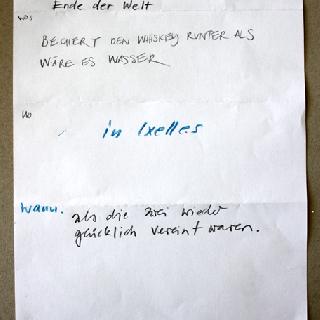 Ende der Welt
was
BECHERT DEN WHISKEY RUNTER ALS
WÄRE ES WASSER
wo
in Ixelles
wann.
als die zwei wieder
glücklich vereint waren.